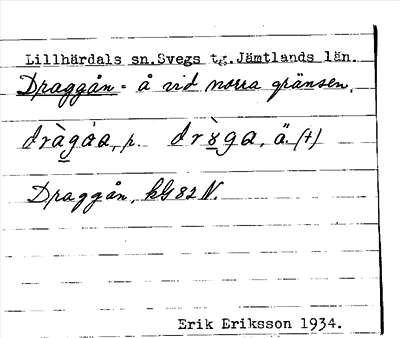 Lillhärdals sn. Svegs tg. Jämtlands län.
Draggån = å vid norra gränsen.
dràgåa, p. drɤ̀ga, ä. (†)
Draggån, kG 82 N.
Erik Eriksson 1934.